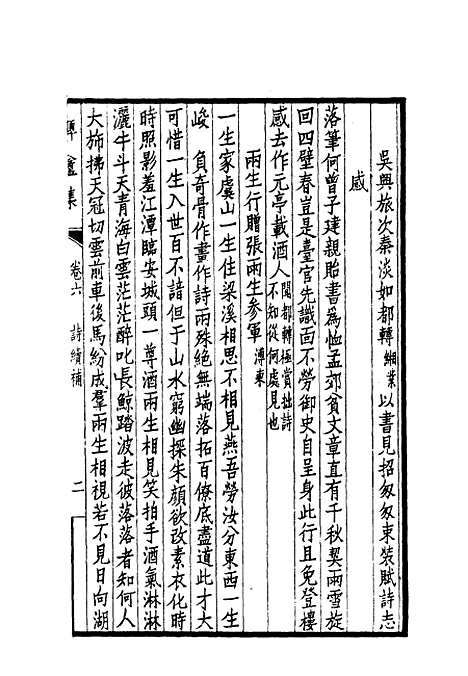 吳興旅次秦淡如都轉緗業以書見招匆匆束裝賦詩志
感
落筆何曾子建親貽書爲恤孟郊貧文章直有千秋契雨雪旋
回四壁春豈是臺官先識面不勞御史自呈身此行且免登樓
感去作元亭載酒人聞都轉極賞拙詩不知從何處見也
兩生行贈張雨生參軍溥東
一生家虞山一生住梁溪相思不相見燕吾勞汝分東西一生
峻負奇骨作畫作詩兩殊絕無端落拓百僚底盡道此才大
可惜一生入世百不諳但于山水窮幽探朱顏欲改素衣化時
時照影羞江潭臨安城頭一尊酒兩生相見笑拍手酒氣淋淋
灑牛斗天青海白雲茫茫醉叱長鯨踏波走彼落落者知何人
大斾拂天冠切雲前車後馬紛成羣兩生相視若不見日向湖
集
卷六 詩續補
二